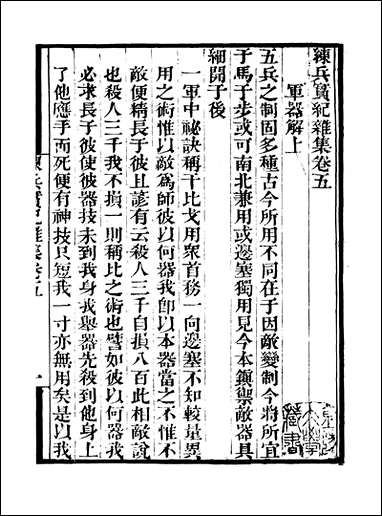 練兵實紀雜集卷五
軍器解上
五兵之制固多種古今所用不同在于因敵變制今將所宜
于馬于步或可南北兼用或邊塞獨用見今本鎮禦敵器具
細開于後
一軍中祕訣稱干比戈用衆首務一向邊塞不知較量異
用之術惟以敵爲師彼以何器我卽以本器當之不惟不
敵便精長于彼且諺有云殺人三千自損八百此相敵說
也殺人三千我不損一則稱比之術也譬如彼以何器我
必求長于彼使彼器技未到我身我舉器先殺到他身上
了他應手而死便有神技只短我一寸亦無用矣是以我
練兵實紀雜集卷五
一